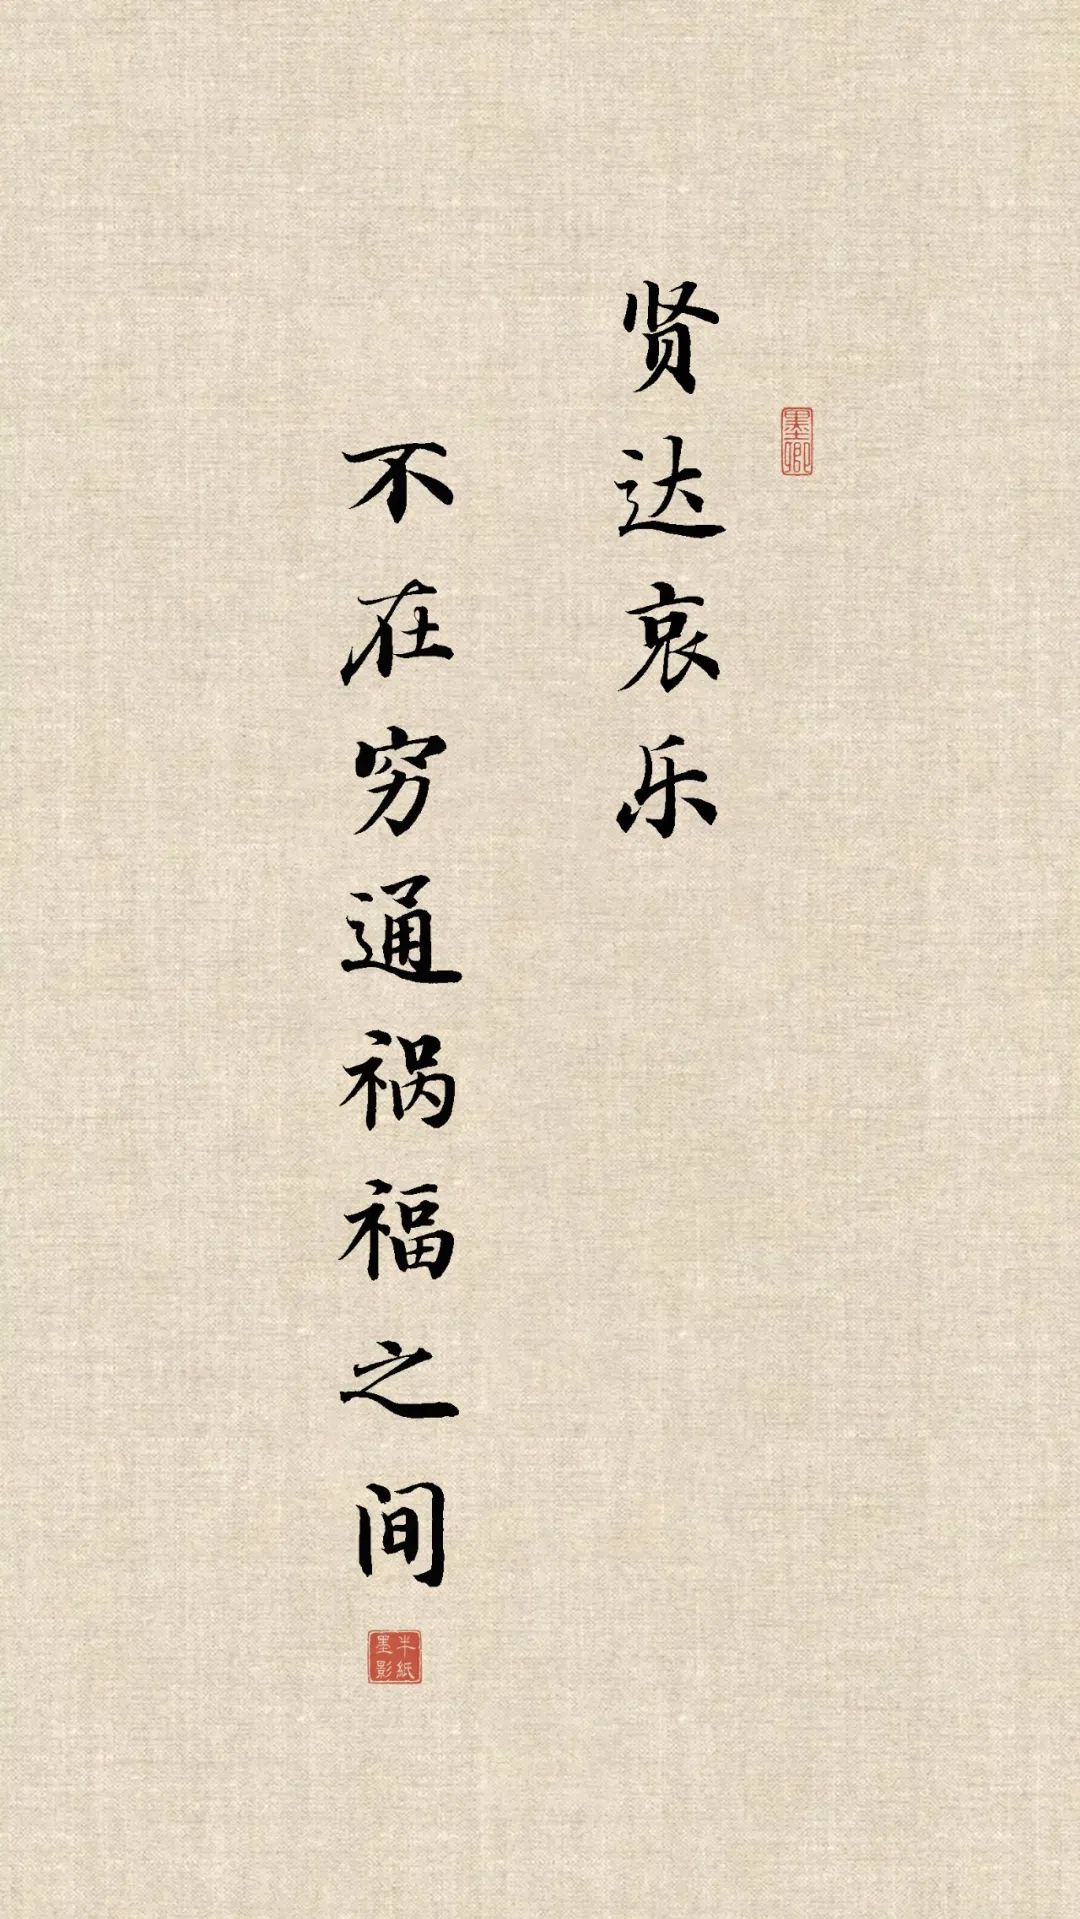 贤达哀乐
不在穷通祸福之间
墨卿
半紙墨影